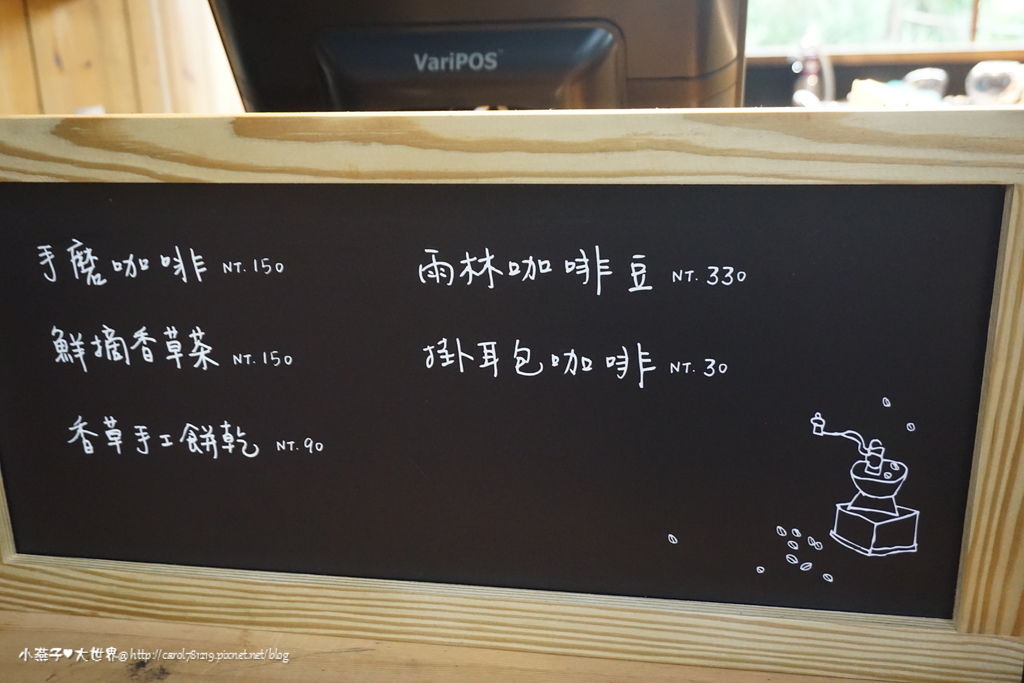 VariPOS
手磨咖啡 NT.150
鮮摘香草茶 NT.150
香草手工餅乾 NT.90
雨林咖啡豆 NT.330
掛耳包咖啡 NT.30
小燕子♥大世界@http://carol781219.pixnet.net/blog